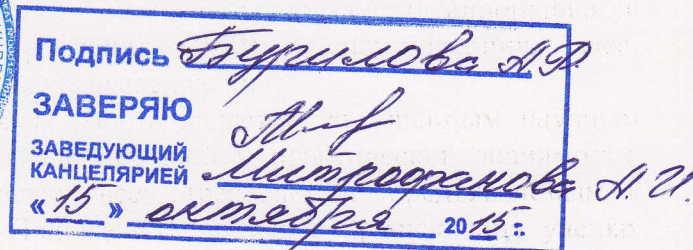 Подпись Бурилова А.Р.
ЗАВЕРЯЮ
ЗАВЕДУЮЩИЙ
КАНЦЕЛЯРИЕЙ Митрофанова А.И.
«15» октября 2015 г.